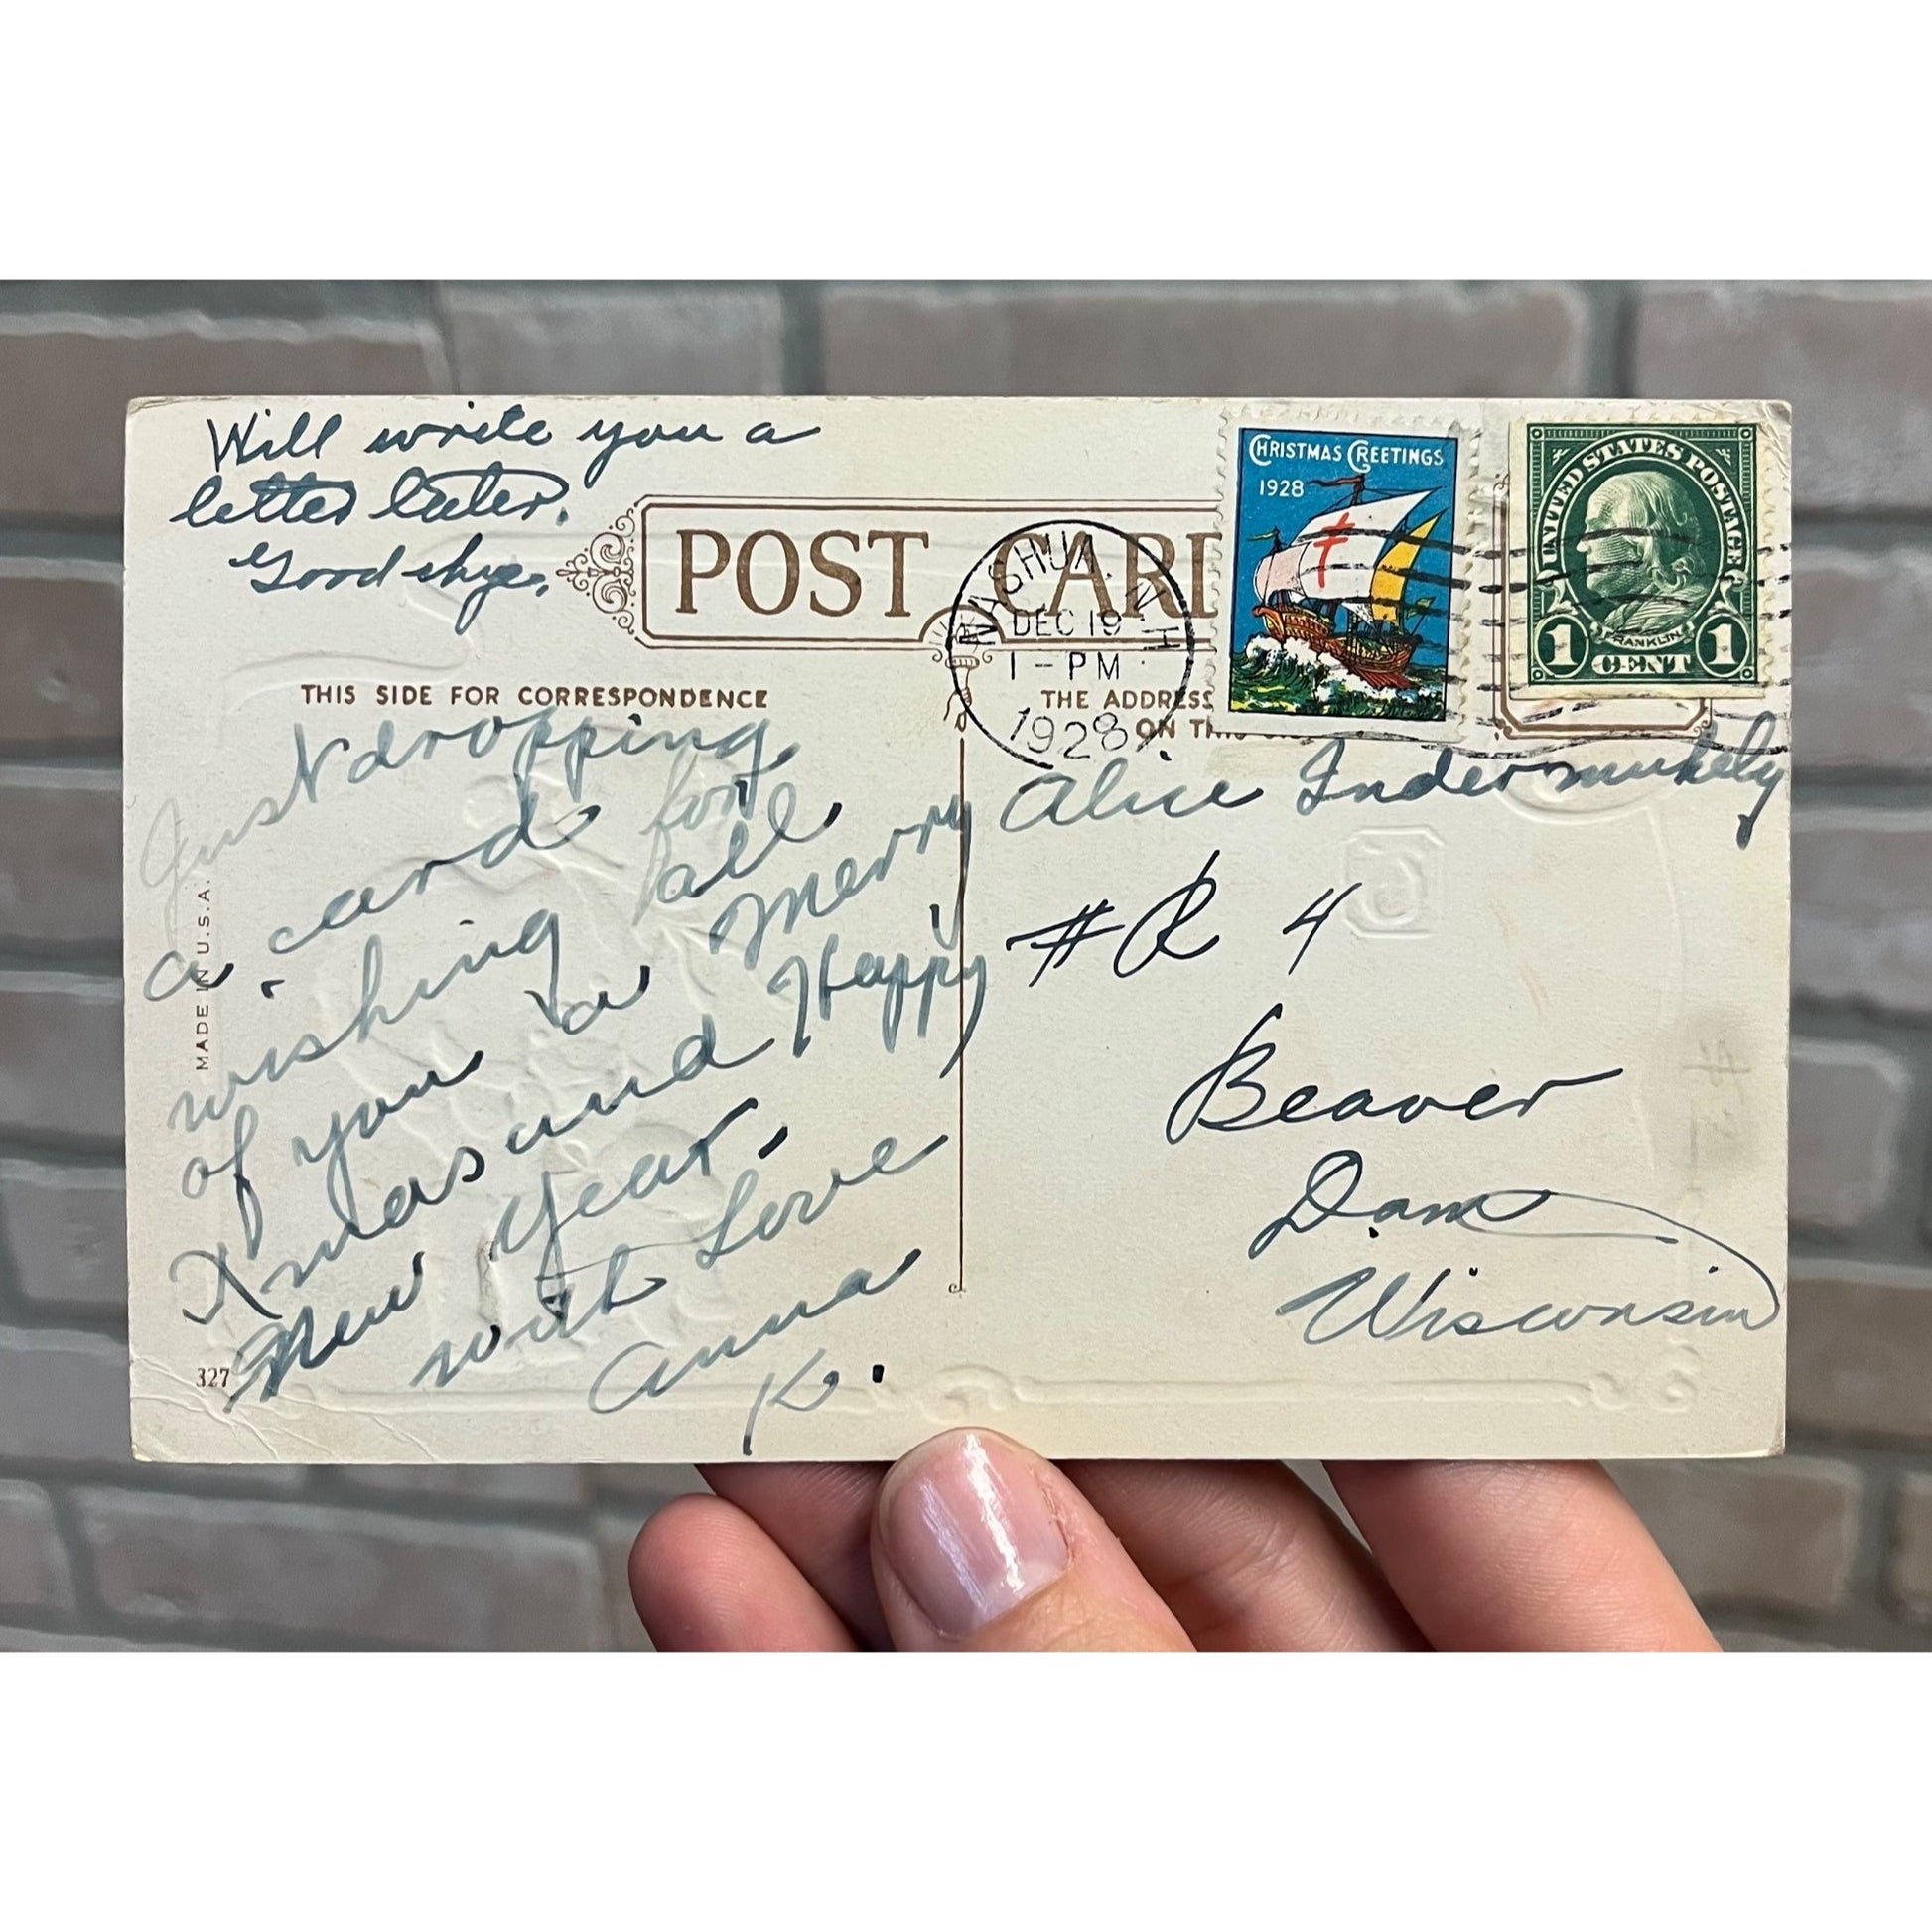 Will write you a
letter later.
Good bye.
POST CARD
THIS SIDE FOR CORRESPONDENCE
Just dropping
a card for
wishing all
of you a Merry
Xmas and Happy
New Year.
with Love
Anna
K.
MADE IN U.S.A.
327
NASHUA, N.H.
DEC 19
1-PM
1928
CHRISTMAS GREETINGS
1928
UNITED STATES POSTAGE
FRANKLIN
1 CENT 1
THE ADDRESS
ON TH
Alice
#R 4
Beaver
Dam
Wisconsin